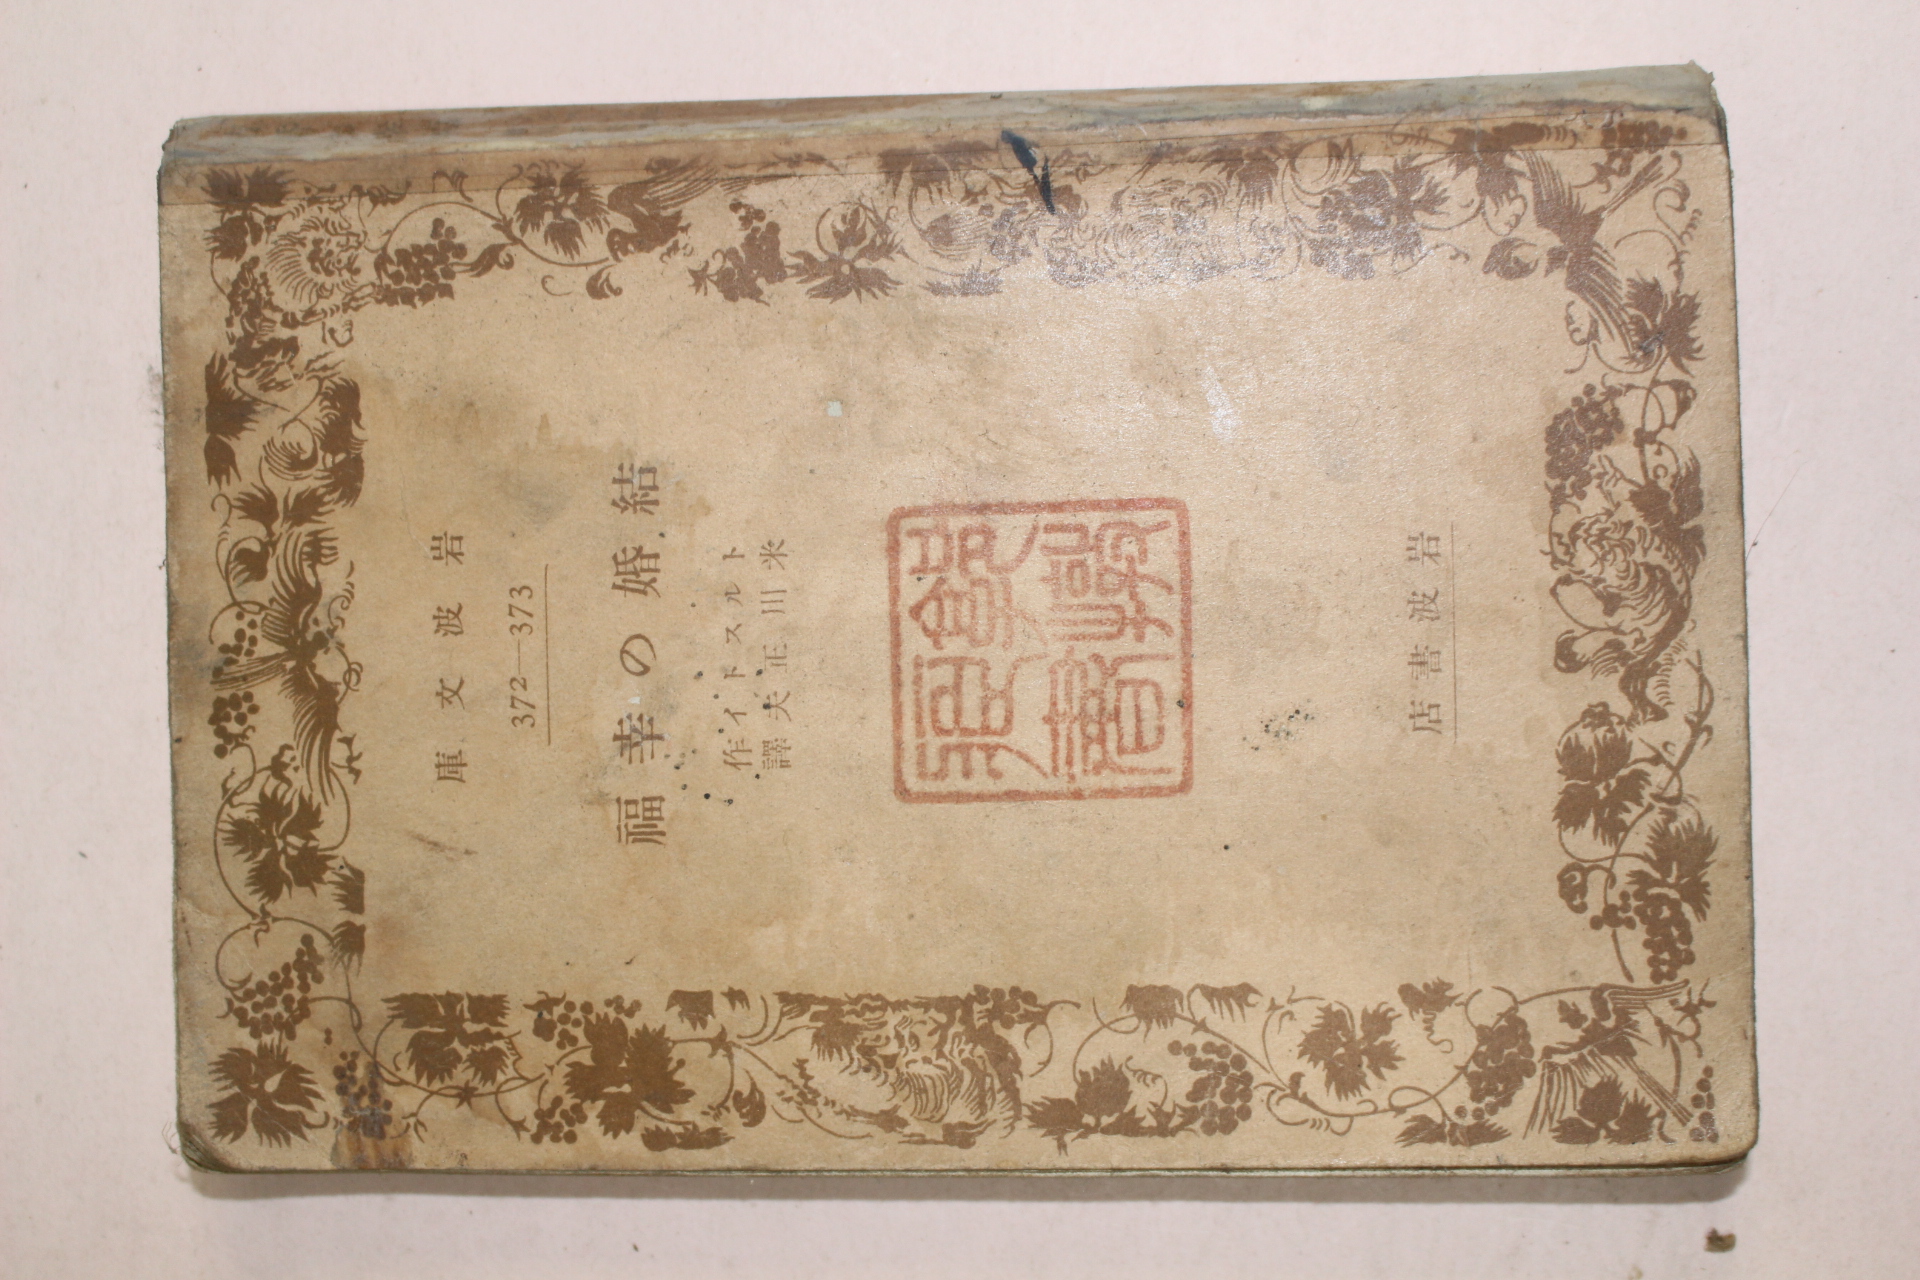 岩波文庫
372—373
結婚の幸福
トルストイ作
米川正夫譯
岩波書店